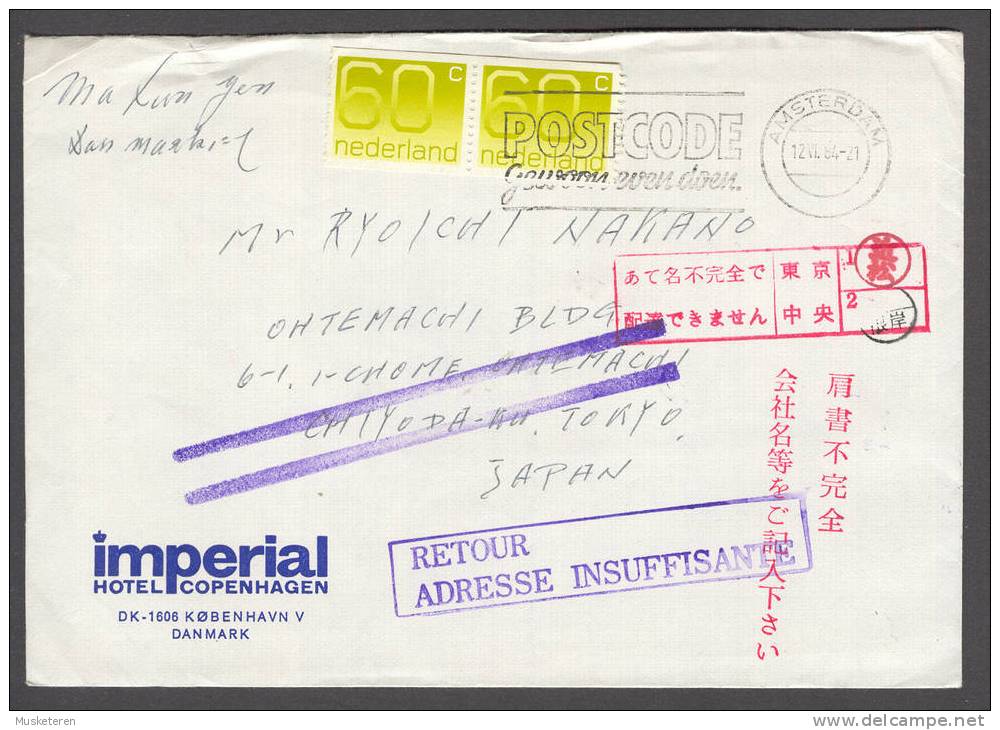 Ma Lun Yen
Danmark
60c 60c
nederland nederland
POSTCODE
Gewoon even doen.
AMSTERDAM
12.VI.84-21
Mr RYOICHI NAKANO
OHTEMACHI BLDG
6-1, 1-CHOME, OHTEMACHI
CHIYODA-KU, TOKYO,
JAPAN
あて名不完全で
配達できません
東京
中央
1
2
根岸
肩書不完全
会社名等をご記入下さい
RETOUR
ADRESSE INSUFFISANTE
imperial
HOTEL COPENHAGEN
DK-1606 KØBENHAVN V
DANMARK
Musketeren
delcampe.net